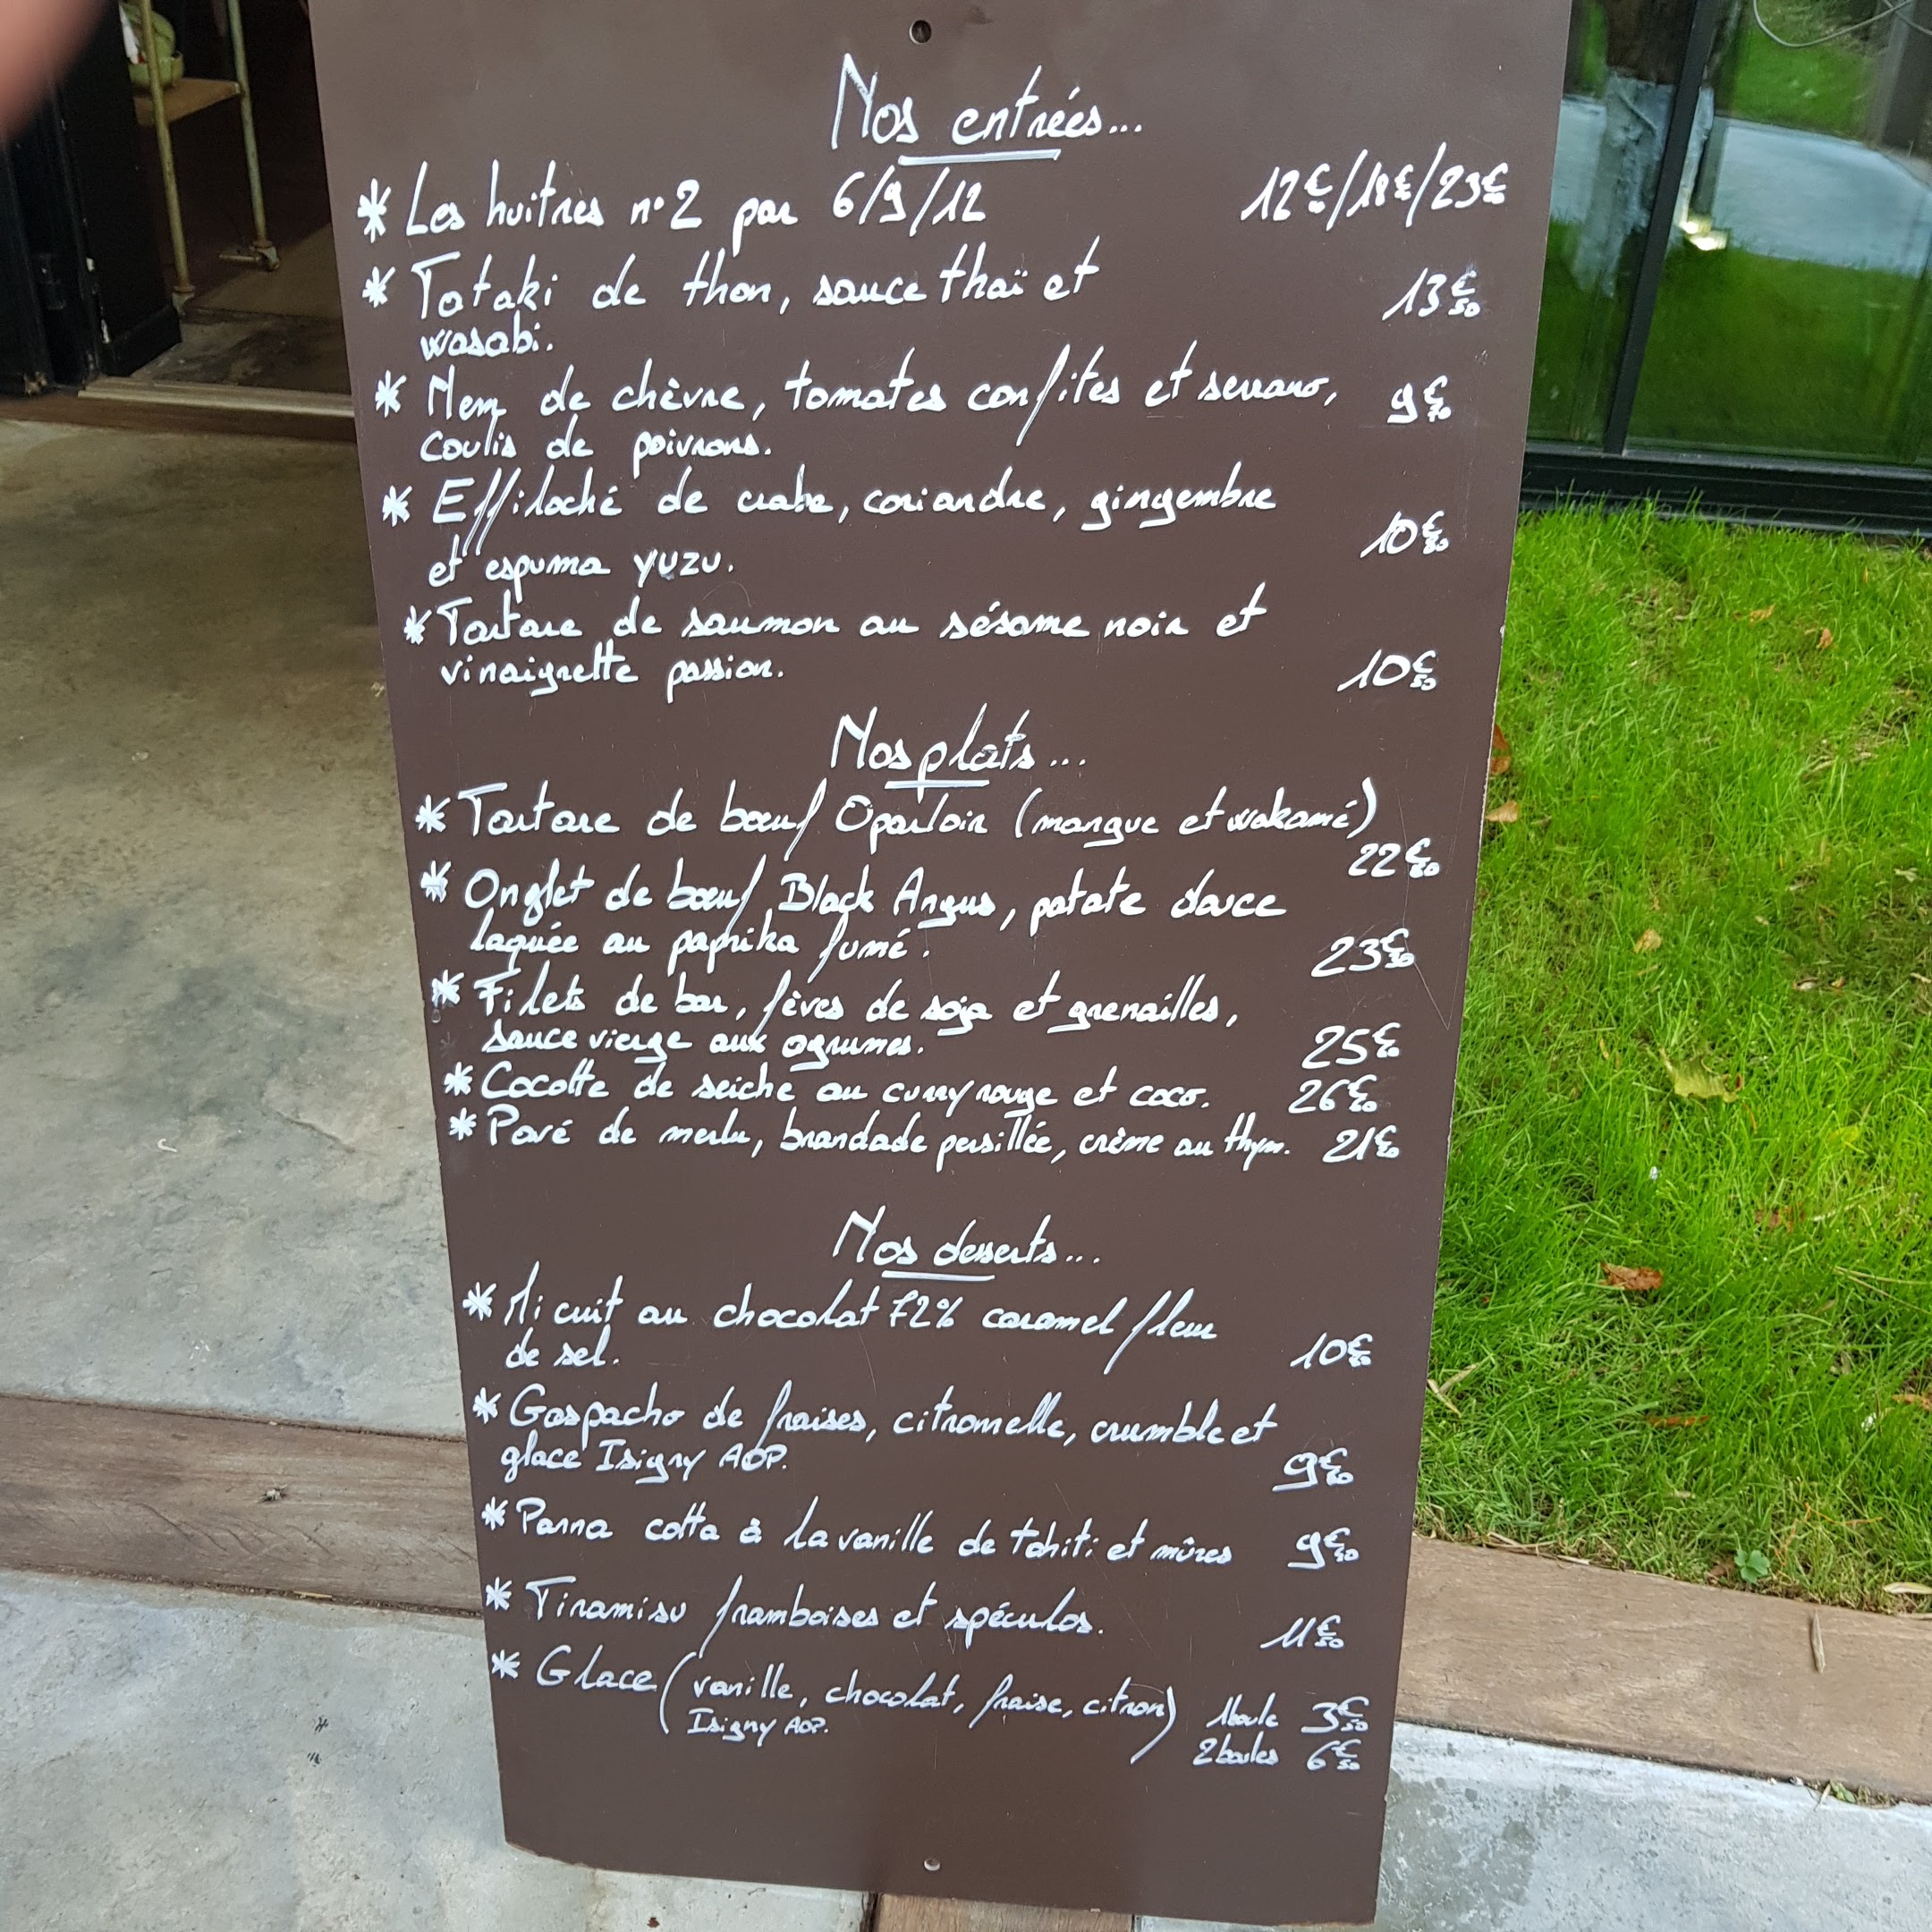 Nos entrées...
* Les huitres n°2 par 6/9/12 12€/18€/23€
* Tataki de thon, sauce thaï et 13€50
wasabi.
* Nem de chèvre, tomates confites et serrano, 9€70
coulis de poivrons.
* Effiloché de crabe, coriandre, gingembre
et espuma yuzu. 10€
* Tartare de saumon au sésame noir et
vinaigrette passion. 10€50
Nos plats...
* Tartare de bœuf Oparloir (mangue et wakamé)
22€
* Onglet de bœuf Black Angus, patate douce
laquée au paprika fumé. 23€
* Filets de bar, fèves de soja et grenailles,
sauce vierge aux agrumes. 25€
* Cocotte de seiche au curry rouge et coco. 26€
* Pavé de merlu, brandade persillée, crème au thym. 21€
Nos desserts...
* Mi cuit au chocolat 72% caramel fleur
de sel. 10€
* Gaspacho de fraises, citronnelle, crumble et
glace Isigny AOP. 9€
* Panna cotta à la vanille de tahiti et mûres 9€
* Tiramisu framboises et spéculos. 11€50
* Glace (vanille, chocolat, fraise, citron) 1boule 3€50
Isigny AOP. 2boules 6€50